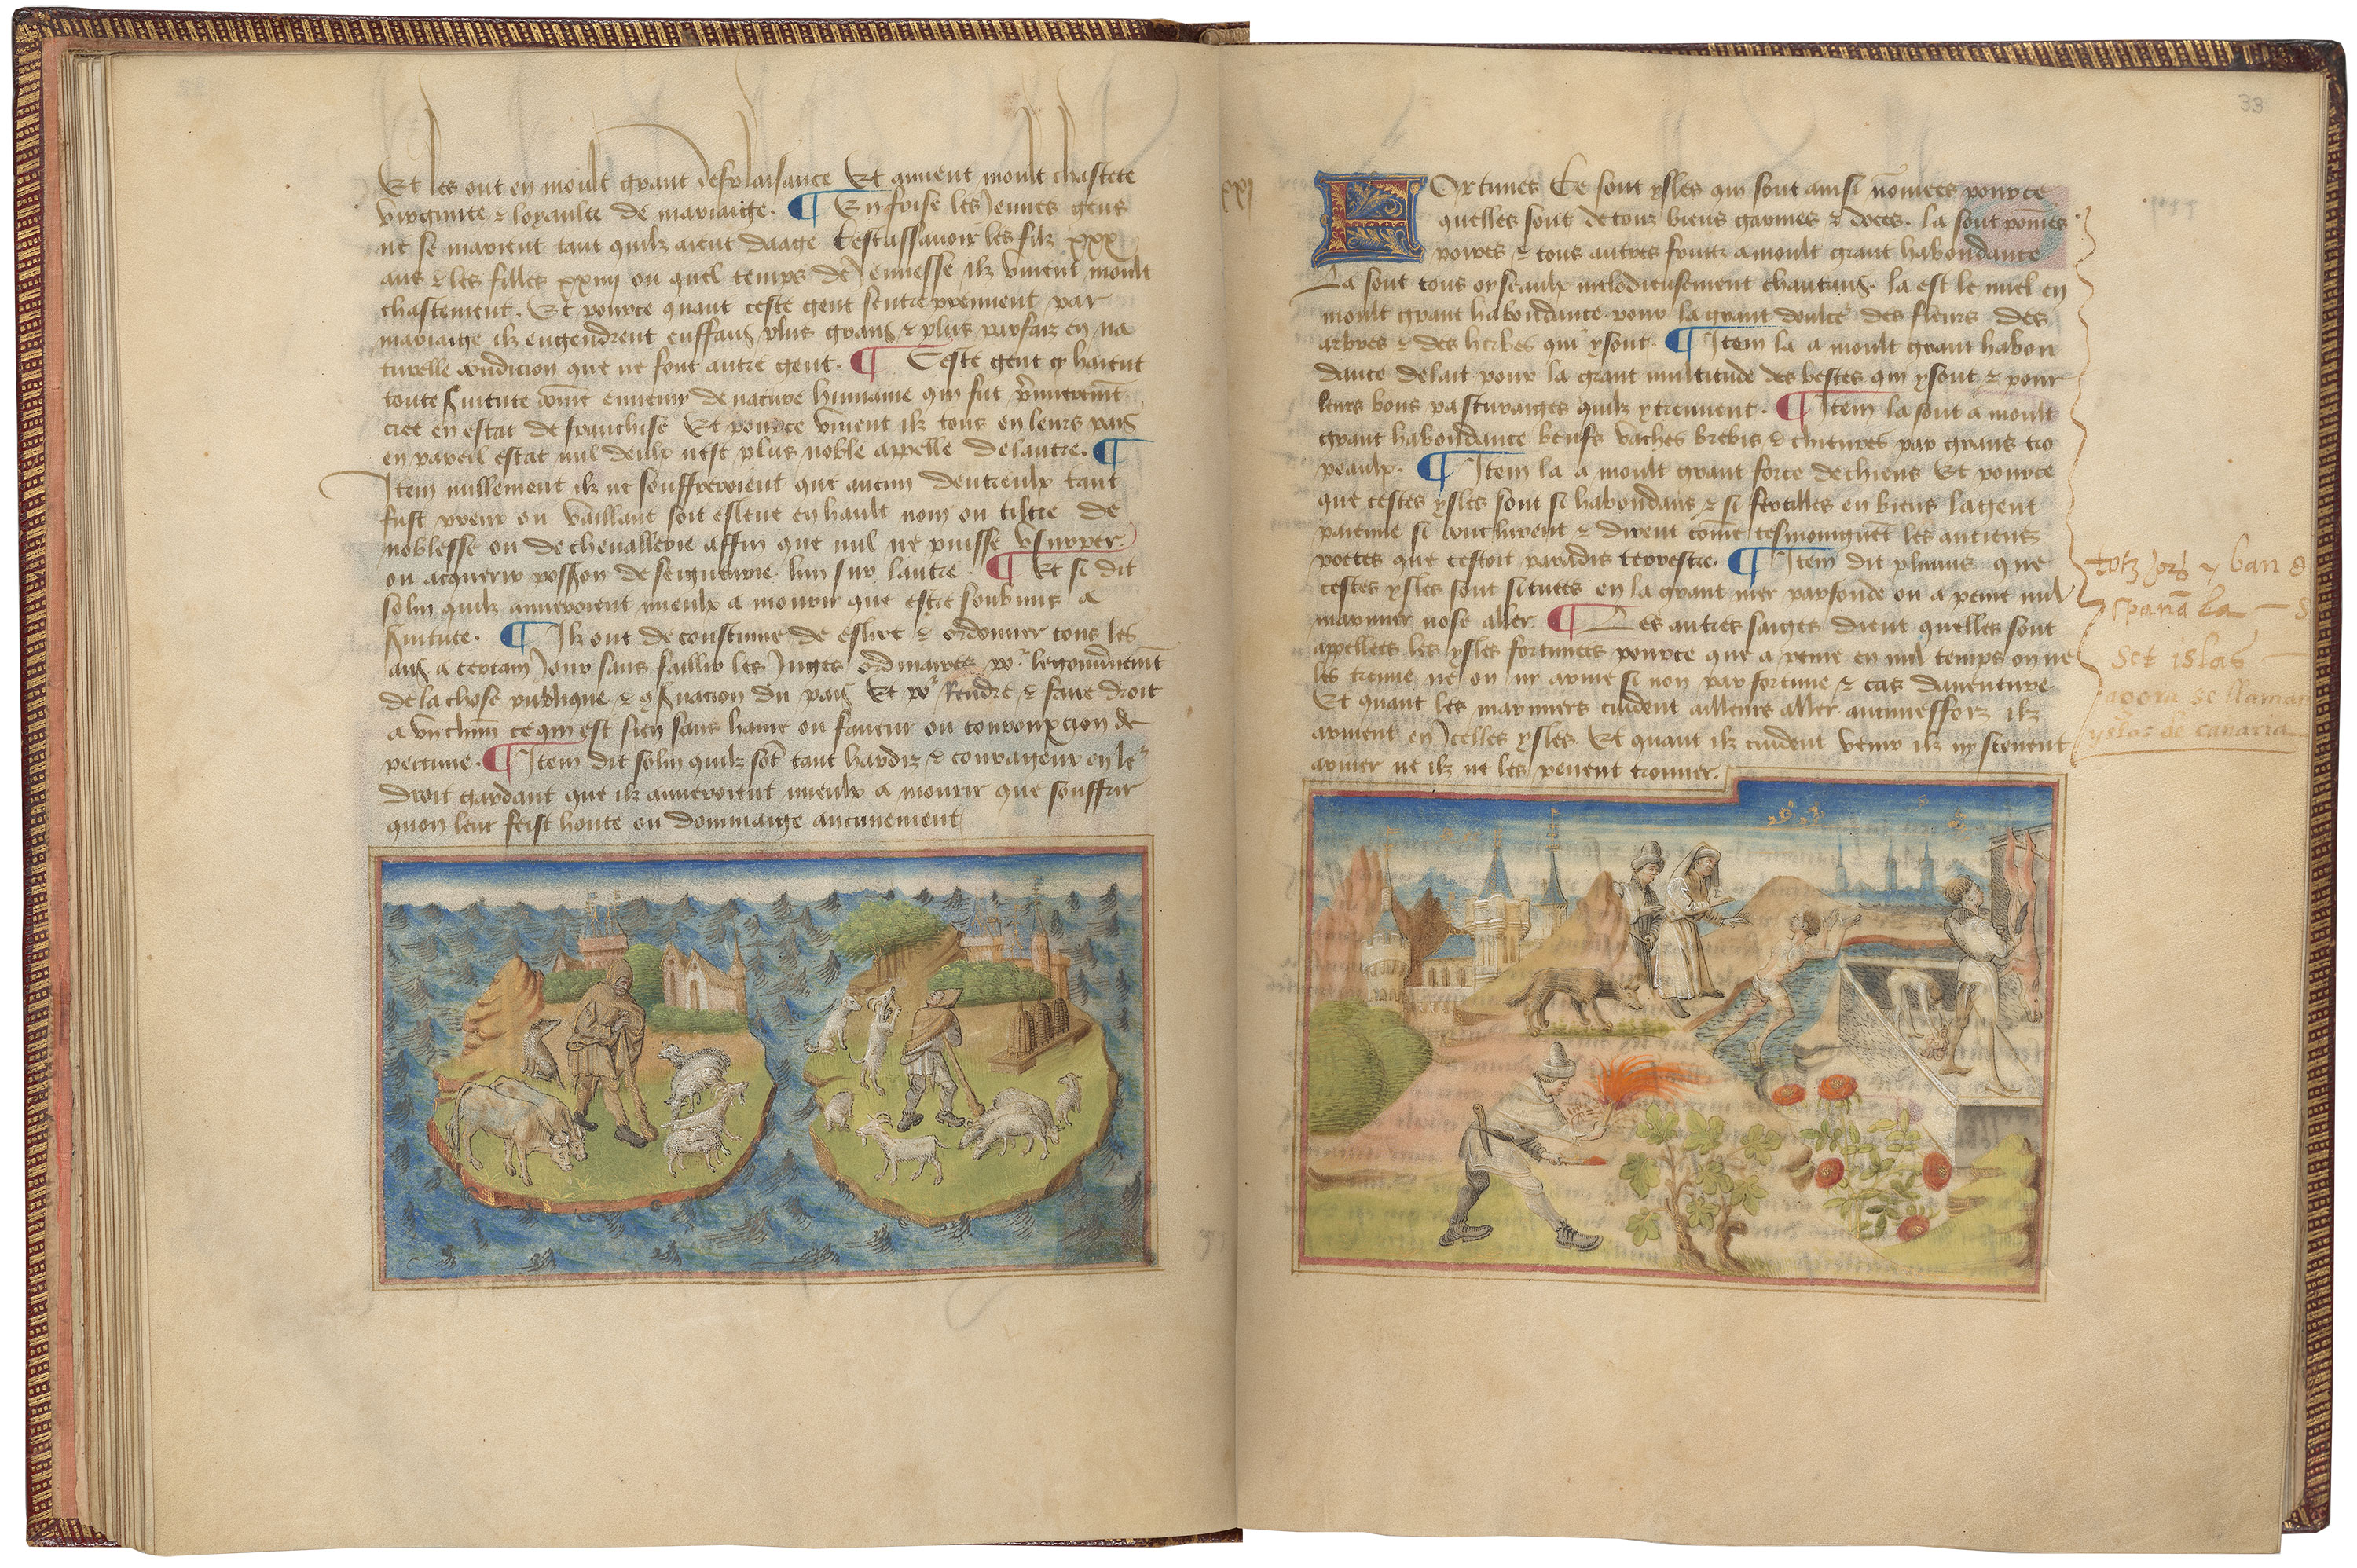 Et les ont en moult grant desplaisance Et aiment moult chastete
virginite & loyaulte de mariaige. ¶ En frise les jeunes gens
ne se marient tant quilz aient daage Cestassavoir les filz xxx
ans & les filles xxiiij ou quel temps de jeunesse ilz vivent moult
chastement. Et pource quant ceste gent sentreprennent par
mariaige ilz engendrent enffans plus grans & plus parfaiz en na
turelle condicion que ne font autre gent. ¶ Ceste gent cy haient
toute svitute come ennemy de nature humaine qui fut
cree en estat de franchise Et pource vivent ilz tous en leurs pais
en pareil estat nul deulx nest plus noble appelle de lautre. ¶
Item nullement ilz ne souffreroient que aucun dentreulx tant
fust preux ou vaillant soit esleut en hault nom ou tiltre de
noblesse ou de chevallerie affin que nul ne puisse usurper
ou acquerir possession de seigneurie lun sur lautre. ¶ Et si dit
solin quilz aimeroient mieulx a mourir que estre soubmis a
svitute. ¶ Ilz ont de coustume de eslire & ordonner tous les
ans a certain jour sans faillir les juges ordinaires po^r le gouvernemet
de la chose publique & du pais Et po^r rendre & faire droit
a ung chun ce qui est sien sans haine ou faveur ou corrompcion de
pecune. ¶ Item dit solin quilz sot tant hardiz & courageux en le^r
droit gardant que ilz aimeroient mieulx a mourir que souffrir
quon leur feist honte ou dommaige aucunement
33
xxj
Fortunes Ce sont ysles qui sont ainsi nomees pource
quelles sont de touz biens garnies & La sont pomes
poires & tous autres fruitz a moult grant habondance
La sont tous oyseaulx melodieusement chantans. la est le miel en
moult grant habondance pour la grant doulce^r des fleurs des
arbres & des herbes qui y sont. ¶ Item la a moult grant habon
dance de lait pour la grant multitude des bestes qui y sont & pour
leurs bons pasturaiges quilz y treuvent. ¶ Item la sont a moult
grant habondance beufs vaches brebis & chievres par grans tro
peaulx. ¶ Item la a moult grant force de chiens Et pource
que cestes ysles sont si habondans & si fertilles en biens la gent
paienne si conclurent & dirent come tesmoingnet les anciens
poetes que cestoit paradis terrestre. ¶ Item dit plinius que
cestes ysles sont situees en la grant mer parfonde ou a peine nul
marinier nose aller ¶ Les autres saiges dient quelles sont
appellees les ysles fortunees pource que a peine en nul temps on ne
les treuve ne on ny arrive si non par fortune & cas daventure
Et quant les mariniers cuident ailleurs aller aucuneffoiz ilz
arrivent en icelles ysles. Et quant ilz cuident venir ilz ny scevent
arriver ne ilz ne les pevent trouver.
set islas
aora se llaman
yslas de canaria